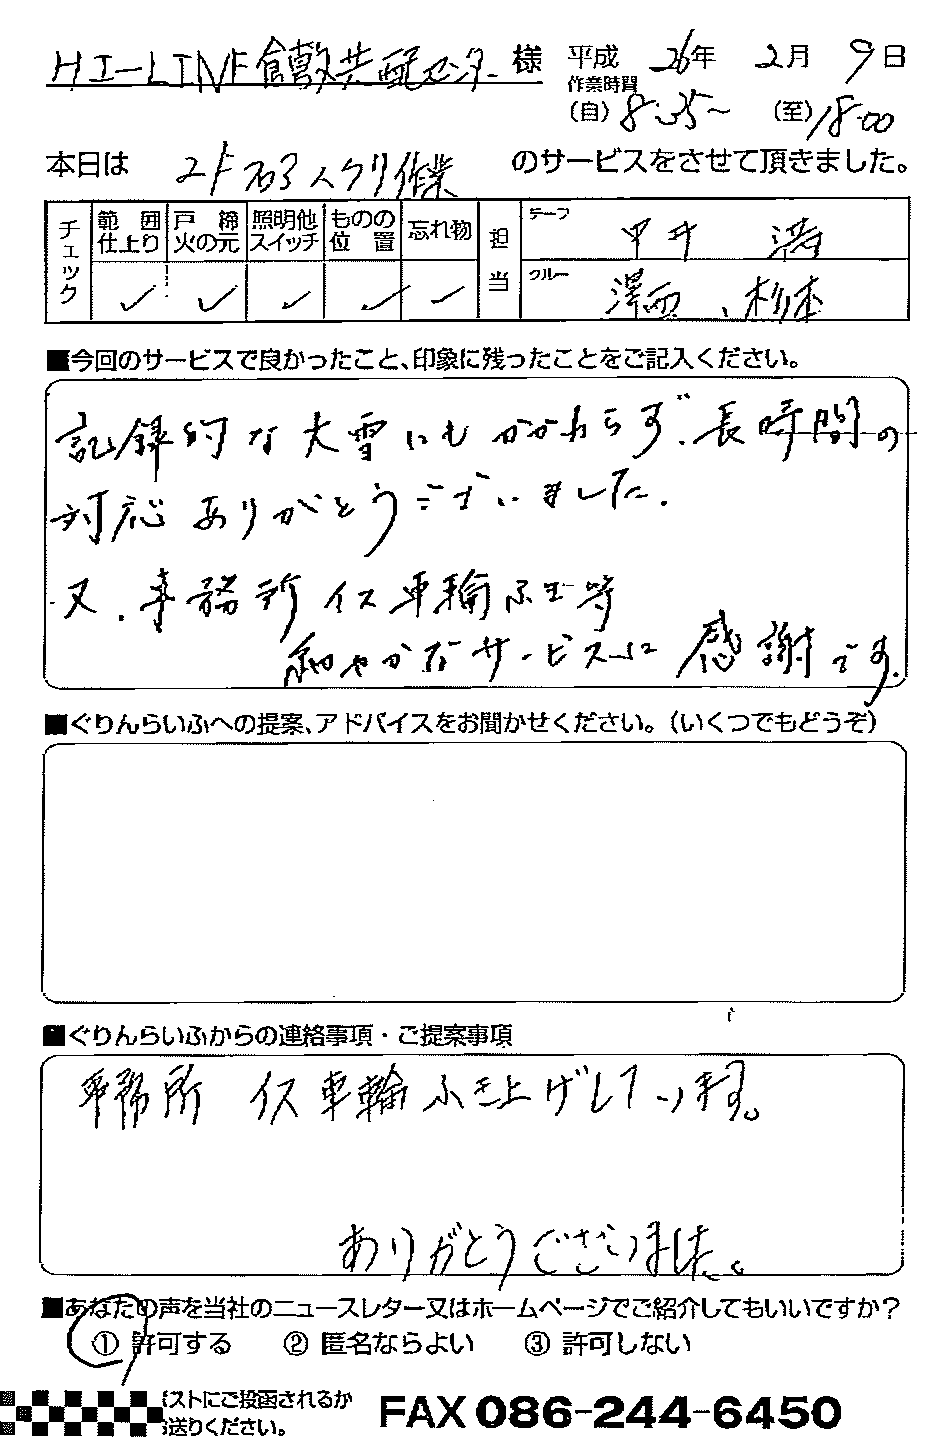 HI-LINE倉敷共配センター 様 平成 26年 2月 9日
作業時間
(自) 8:35~ (至) 18:00
本日は 2F フロアスクリ作業 のサービスをさせて頂きました。
チェック 範囲仕上り 戸締火の元 照明他スイッチ ものの位置 忘れ物 担当
チーフ 甲井
クルー 澤西、杉本
■今回のサービスで良かったこと、印象に残ったことをご記入ください。
記録的な大雪にもかかわらず、長時間の
対応ありがとうございました。
又、事務所 イス車輪ふき等
細やかなサービスに 感謝です。
■ぐりんらいふへの提案、アドバイスをお聞かせください。(いくつでもどうぞ)
■ぐりんらいふからの連絡事項・ご提案事項
事務所 イス車輪ふき上げしています。
ありがとうございました。
■あなたの声を当社のニュースレター又はホームページでご紹介してもいいですか?
① 許可する ② 匿名ならよい ③ 許可しない
ストにご投函されるか
送りください。
FAX 086-244-6450